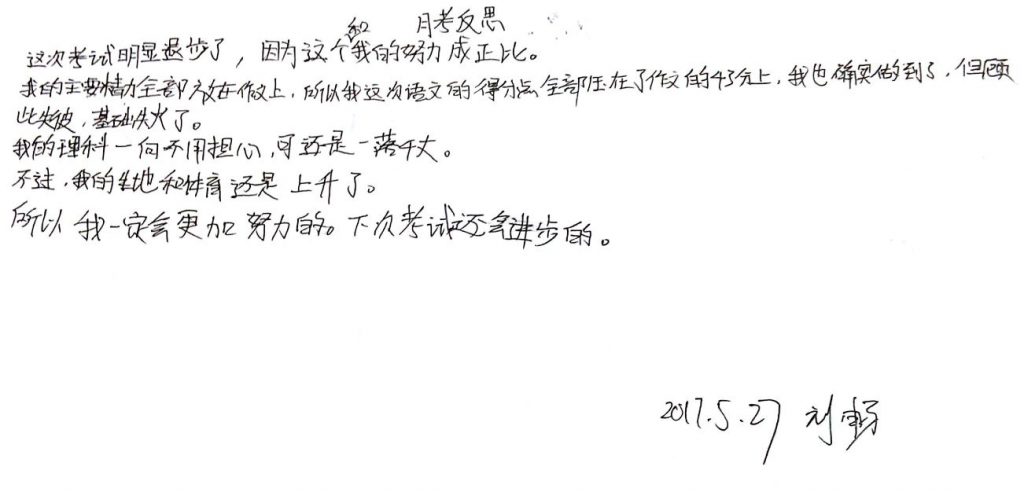 月考反思
这次考试明显退步了，因为这个和我的努力成正比。
我的主要精力全部放在作文上，所以我这次语文的得分点全部压在了作文的43分上，我也确实做到了，但顾
此失彼，基础失火了。
我的理科一向不用担心，可还是一落千丈。
不过，我的生地和体育还是上升了。
所以我一定会更加努力的。下次考试还会进步的。
2017.5.27 刘